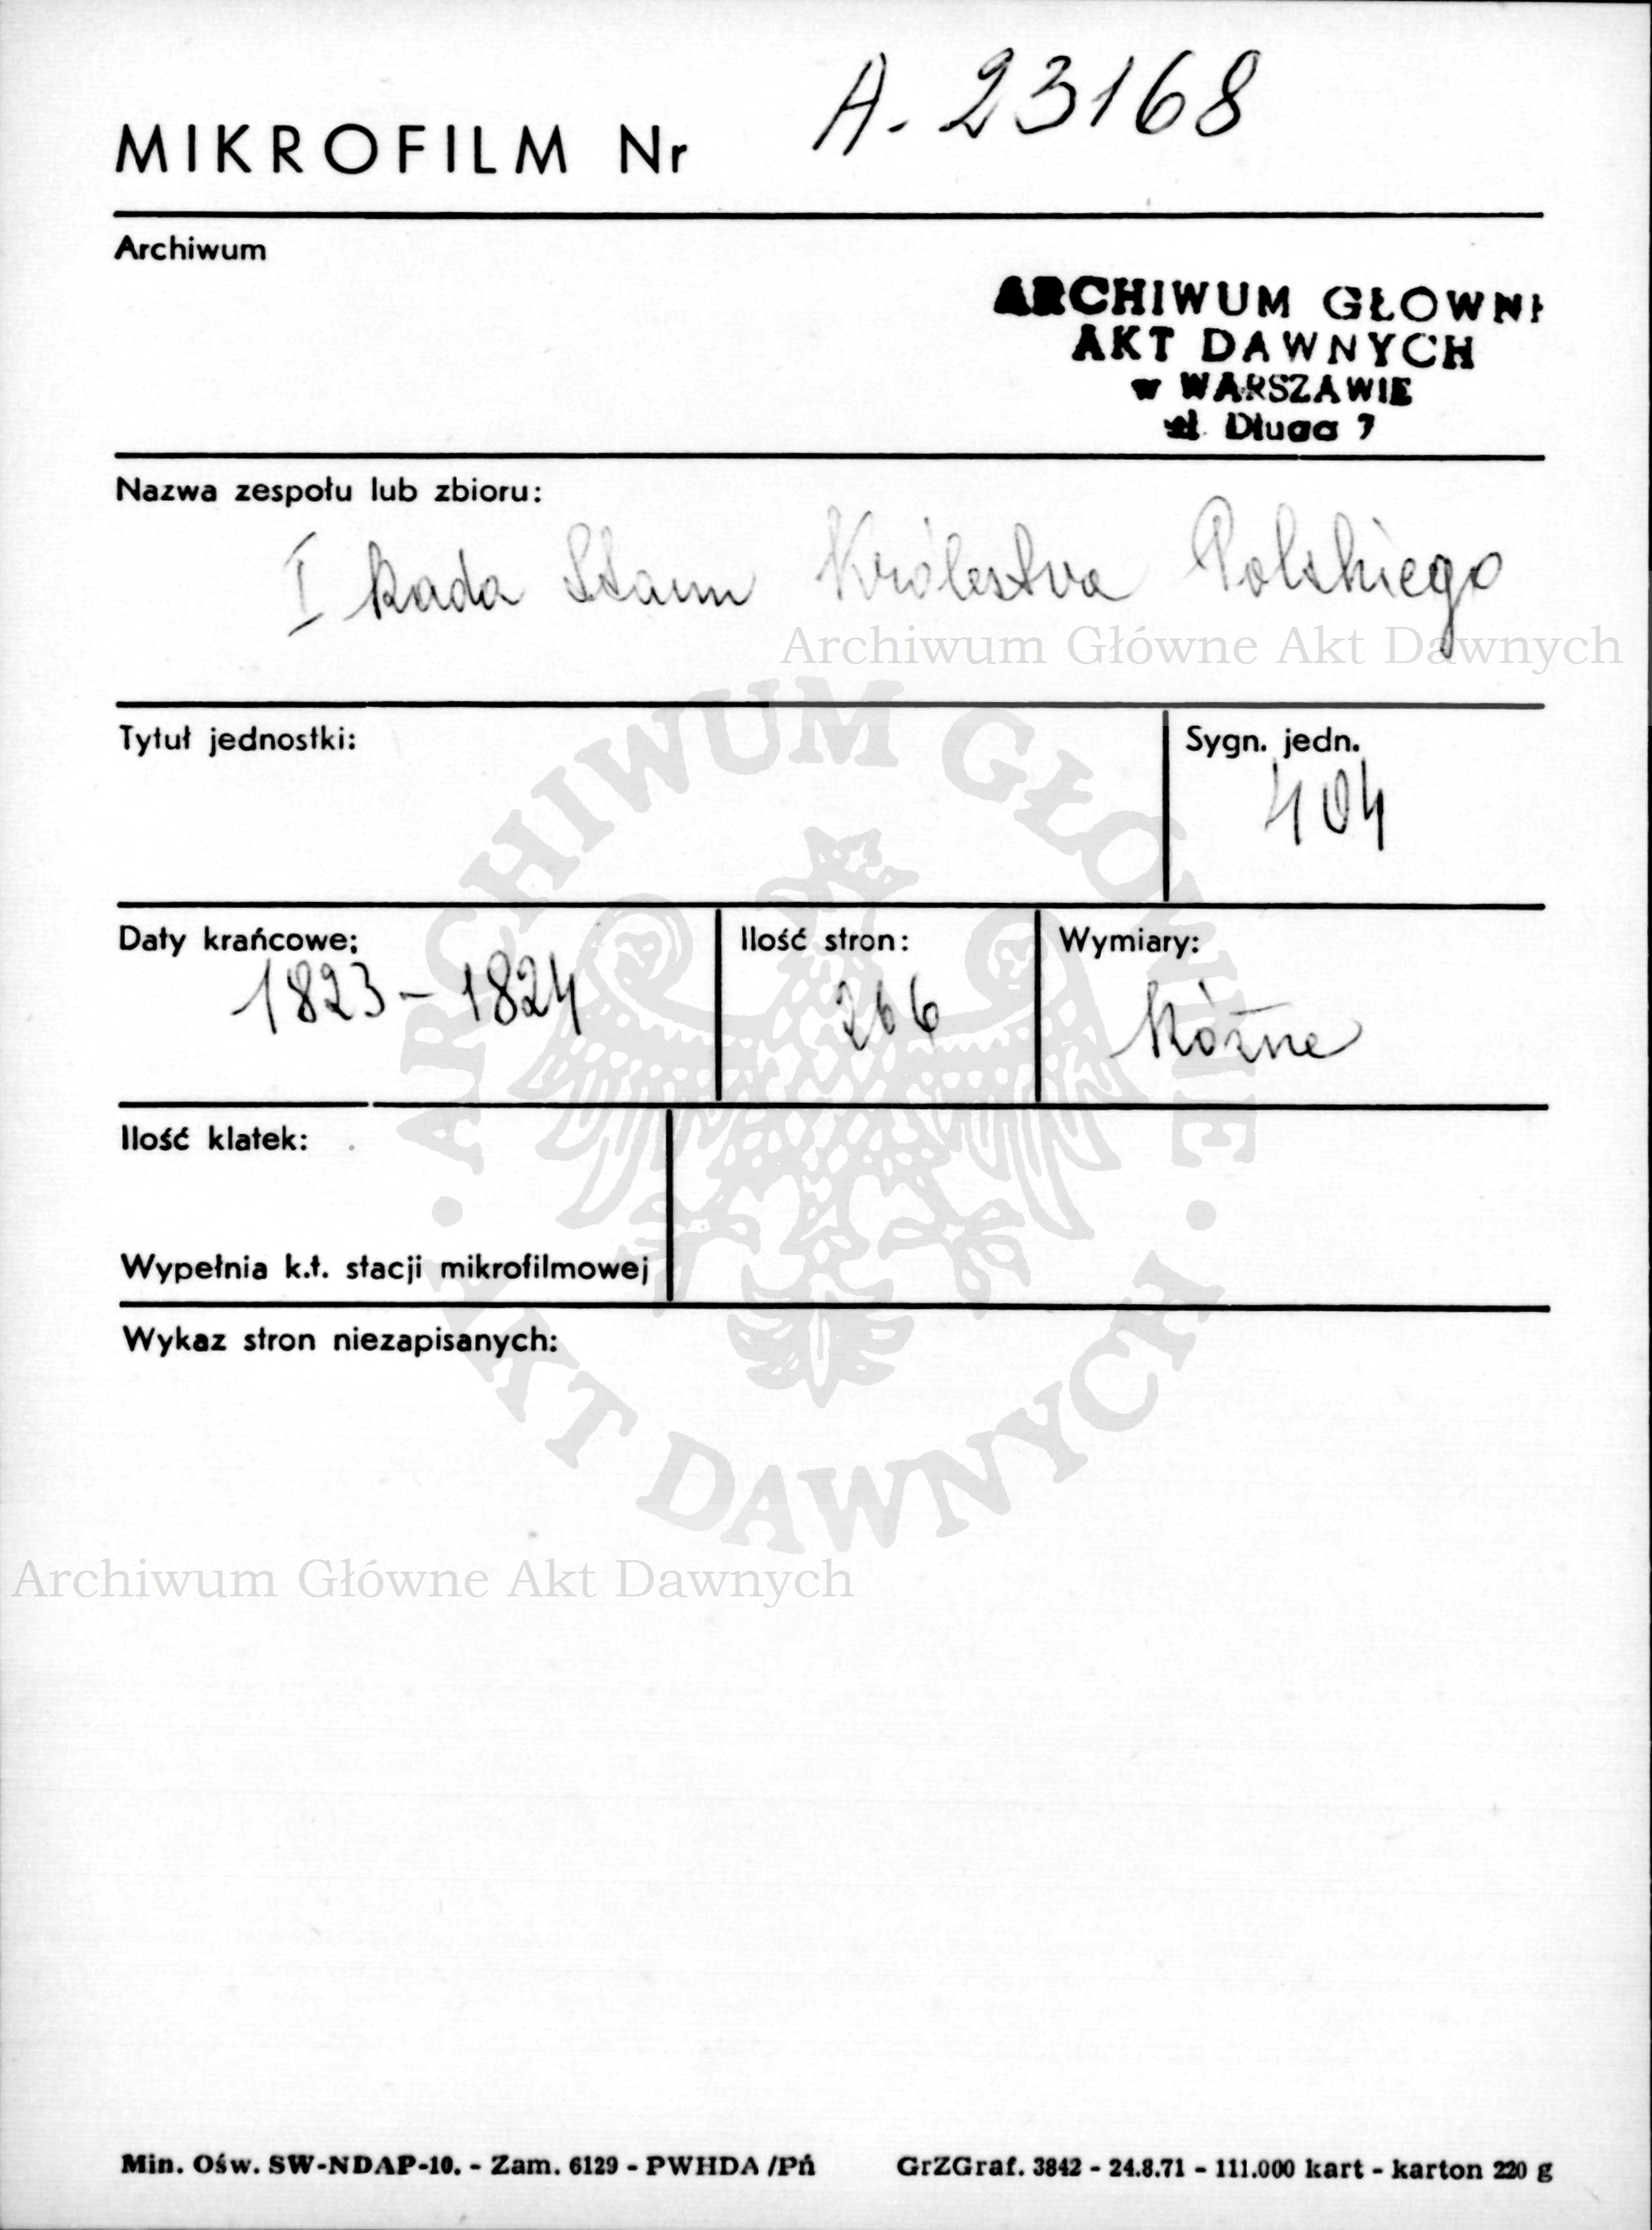 MIKROFILM Nr A. 23168
Archiwum
ARCHIWUM GŁOWNE
AKT DAWNYCH
w WARSZAWIE
ul. Długa 7
Nazwa zespołu lub zbioru:
I Rada Stanu Królestwa Polskiego
Archiwum Główne Akt Dawnych
Tytuł jednostki:
Sygn. jedn.
404
Daty krańcowe:
1823-1824
Ilość stron:
266
Wymiary:
Różne
Ilość klatek:
Wypełnia k.t. stacji mikrofilmowej
Wykaz stron niezapisanych:
ARCHIWUM GŁÓWNE · AKT DAWNYCH ·
Archiwum Główne Akt Dawnych
Min. Ośw. SW-NDAP-10. - Zam. 6129 - PWHDA /Pń GrZGraf. 3842 - 24.8.71 - 111.000 kart - karton 220 g